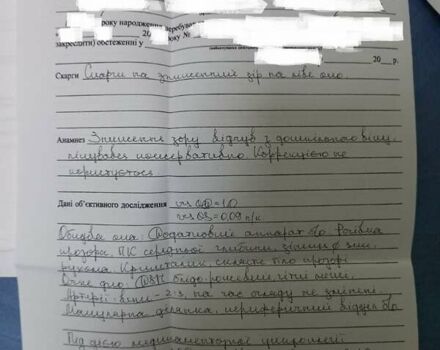 року народження перебував
20 року №
закреслити) обстеженні у
20 р.
Скарги Скарги на знижений зір на ліве око.
Анамнез Зниження зору відчув з дошкільного віку,
лікувався консервативно. Коррекцією не
користується.
Дані об’єктивного дослідження vis OD = 1.0
vis OS = 0,09 н/к
Обидва ока: Додатковий аппарат б/о. Рогівка
прозора. ПК середньої глибини, зіниця
рухома. Кришталик, скл. тіло прозорі
Очне дно: ДЗН блідо-рожевий, чіткі межі,
Артерії : вени - 2:3, на час огляду не змінені.
Макулярна ділянка, периферичний відділ б/о
Під дією медикаментозної циклоплегії